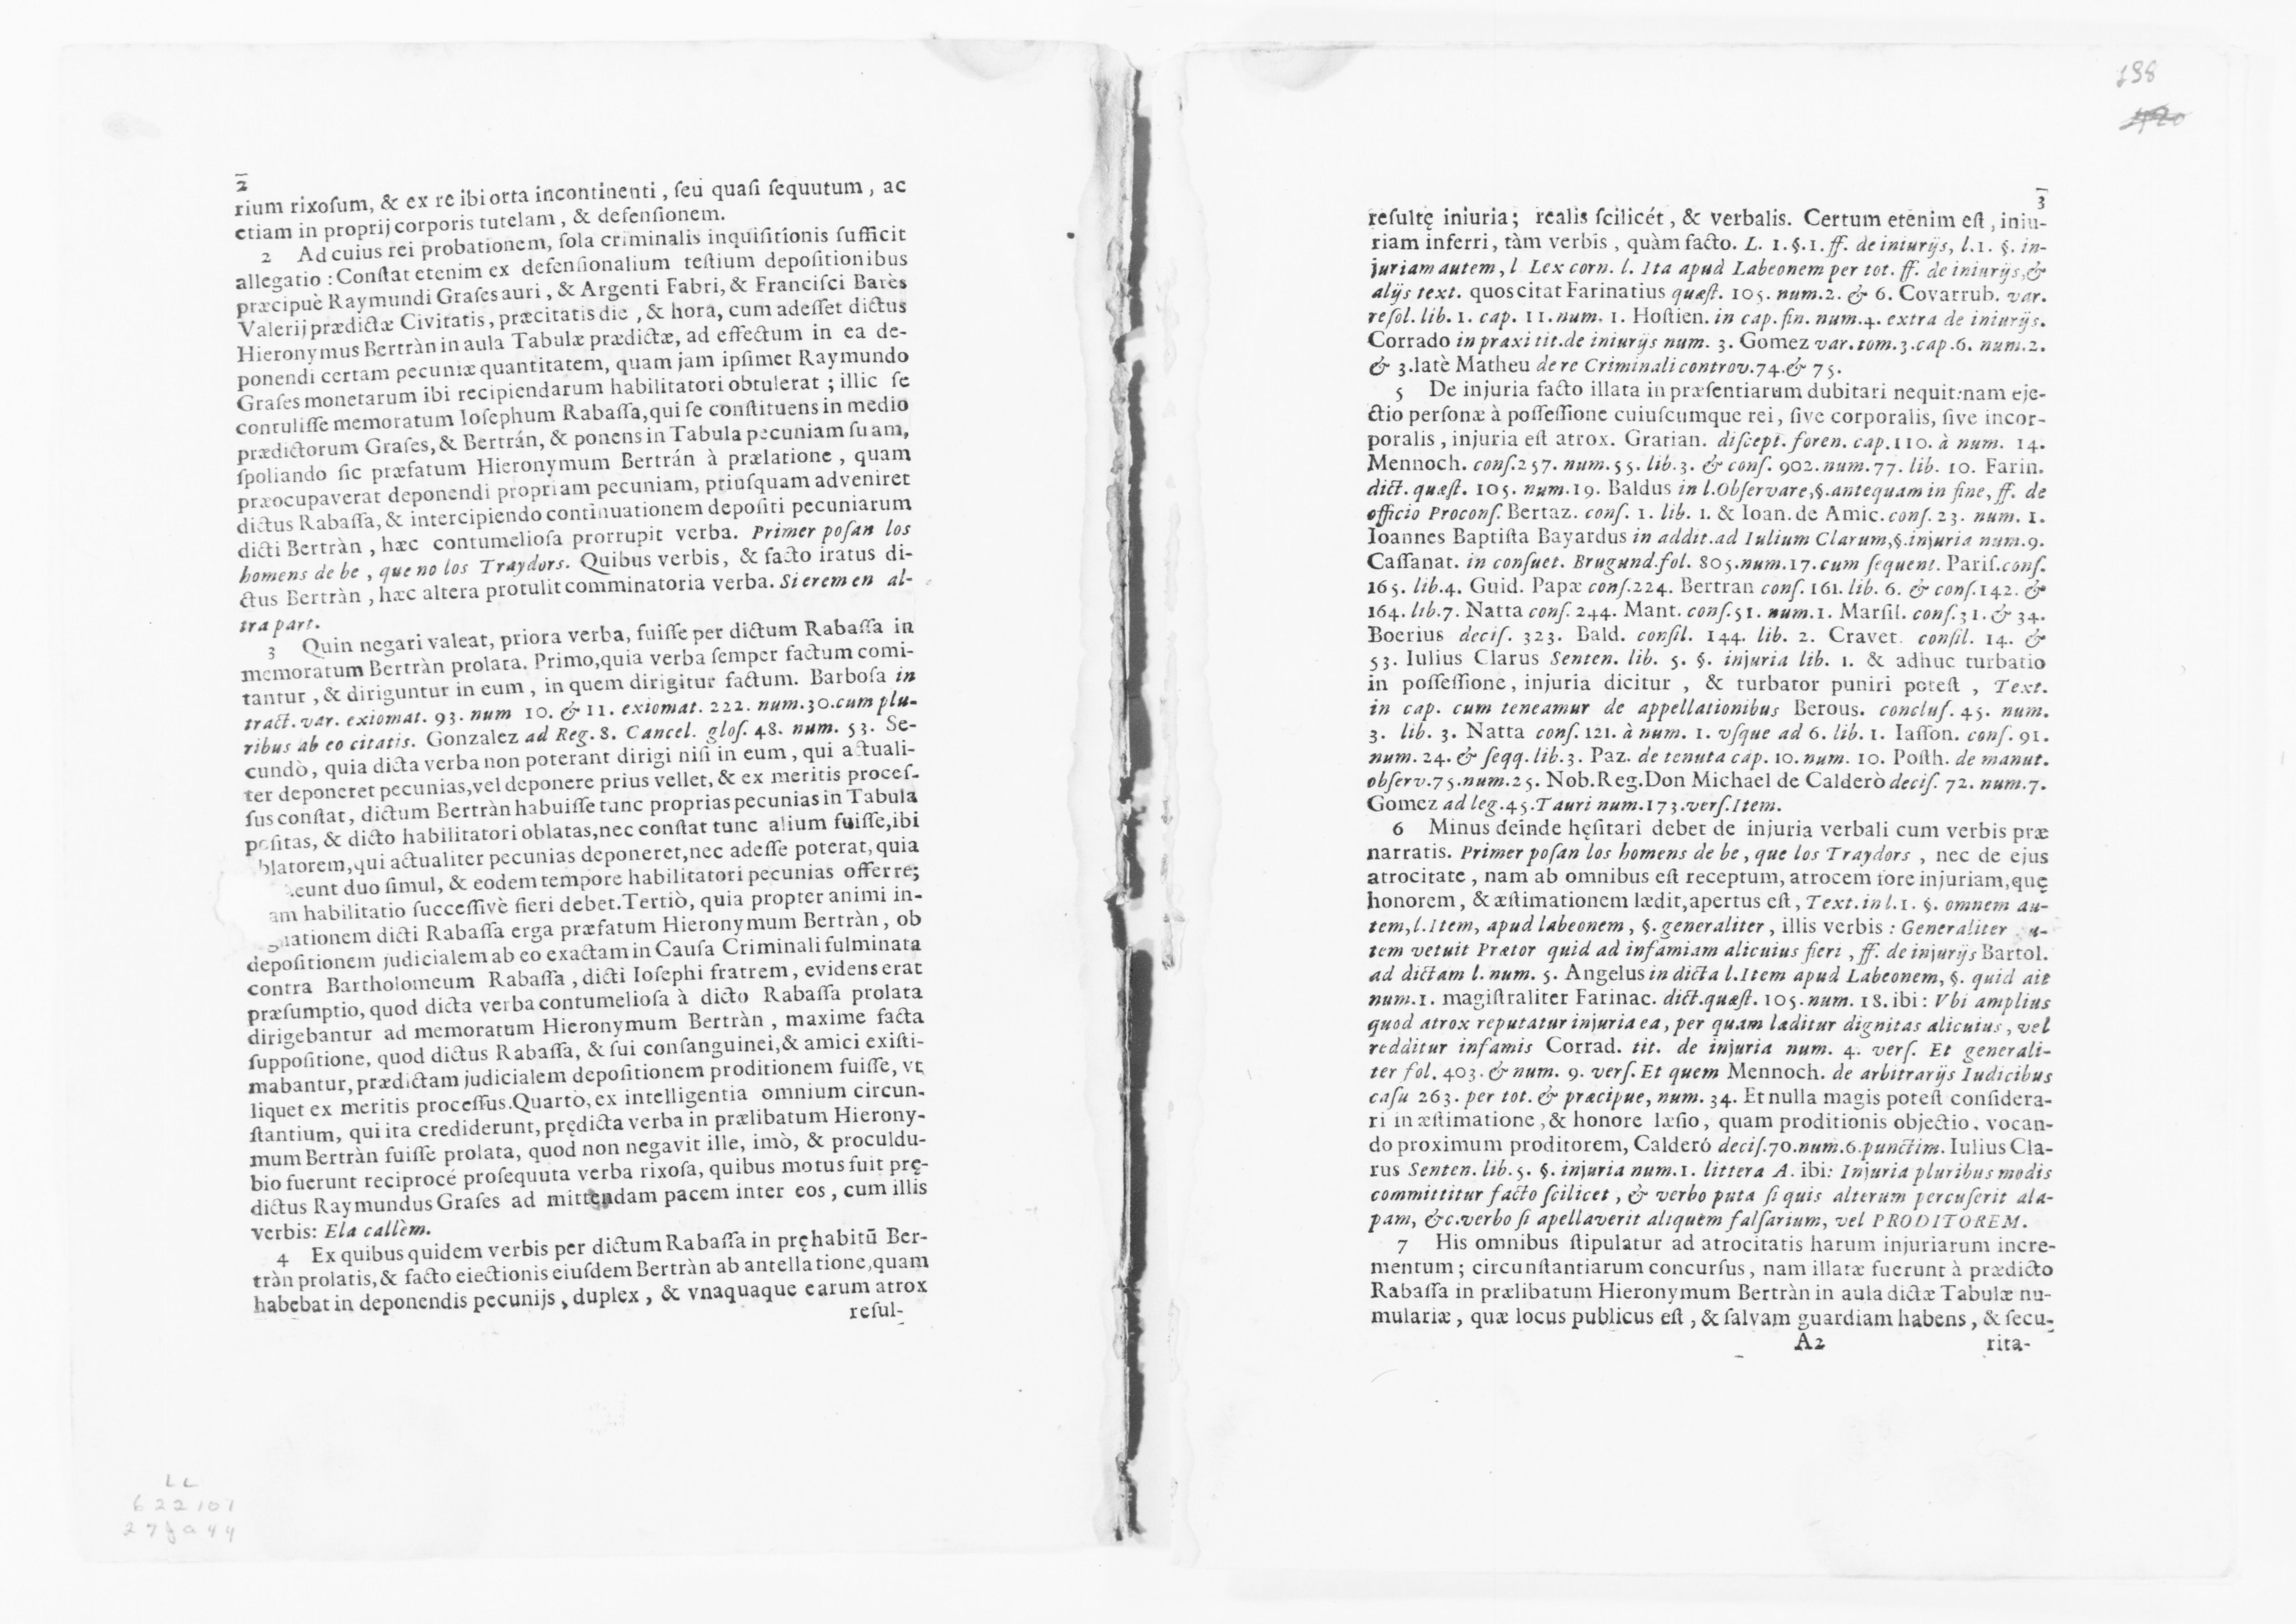 2
rium rixoſum, & ex re ibi orta incontinenti, ſeu quaſi ſequutum, ac
etiam in proprij corporis tutelam, & defenſionem.
2 Ad cuius rei probationem, ſola criminalis inquiſitionis ſufficit
allegatio: Conſtat etenim ex defenſionalium teſtium depoſitionibus
præcipuè Raymundi Graſes auri, & Argenti Fabri, & Franciſci Barès
Valerij prædictæ Civitatis, præcitatis die, & hora, cum adeſſet dictus
Hieronymus Bertràn in aula Tabulæ prædictæ, ad effectum in ea de-
ponendi certam pecuniæ quantitatem, quam jam ipſimet Raymundo
Graſes monetarum ibi recipiendarum habilitatori obtulerat; illic ſe
contuliſſe memoratum Ioſephum Rabaſſa, qui ſe conſtituens in medio
prædictorum Graſes, & Bertrán, & ponens in Tabula pecuniam ſuam,
ſpoliando ſic præfatum Hieronymum Bertrán à prælatione, quam
præocupaverat deponendi propriam pecuniam, priuſquam adveniret
dictus Rabaſſa, & intercipiendo continuationem depoſiti pecuniarum
dicti Bertràn, hæc contumelioſa prorrupit verba. Primer poſan los
homens de be, que no los Traydors. Quibus verbis, & facto iratus di-
ctus Bertràn, hæc altera protulit comminatoria verba. Si erem en al-
tra part.
3 Quin negari valeat, priora verba, fuiſſe per dictum Rabaſſa in
memoratum Bertràn prolata. Primo, quia verba ſemper factum comi-
tantur, & diriguntur in eum, in quem dirigitur factum. Barboſa in
tract. var. exiomat. 93. num 10. & 11. exiomat. 222. num. 30. cum plu-
ribus ab eo citatis. Gonzalez ad Reg. 8. Cancel. gloſ. 48. num. 53. Se-
cundò, quia dicta verba non poterant dirigi niſi in eum, qui actuali-
ter deponeret pecunias, vel deponere prius vellet, & ex meritis proceſ-
ſus conſtat, dictum Bertràn habuiſſe tunc proprias pecunias in Tabula
poſitas, & dicto habilitatori oblatas, nec conſtat tunc alium fuiſſe, ibi
blatorem, qui actualiter pecunias deponeret, nec adeſſe poterat, quia
eunt duo ſimul, & eodem tempore habilitatori pecunias offerre;
am habilitatio ſucceſſivè fieri debet. Tertiò, quia propter animi in-
nationem dicti Rabaſſa erga præfatum Hieronymum Bertràn, ob
depoſitionem judicialem ab eo exactam in Cauſa Criminali fulminata
contra Bartholomeum Rabaſſa, dicti Ioſephi fratrem, evidens erat
præſumptio, quod dicta verba contumelioſa à dicto Rabaſſa prolata
dirigebantur ad memoratum Hieronymum Bertràn, maxime facta
ſuppoſitione, quod dictus Rabaſſa, & ſui conſanguinei, & amici exiſti-
mabantur, prædictam judicialem depoſitionem proditionem fuiſſe, vt
liquet ex meritis proceſſus. Quartò, ex intelligentia omnium circun-
ſtantium, qui ita crediderunt, prędicta verba in prælibatum Hierony-
mum Bertràn fuiſſe prolata, quod non negavit ille, imò, & proculdu-
bio fuerunt reciprocé proſequuta verba rixoſa, quibus motus fuit prę-
dictus Raymundus Graſes ad mittendam pacem inter eos, cum illis
verbis: Ela callèm.
4 Ex quibus quidem verbis per dictum Rabaſſa in pręhabitū Ber-
tràn prolatis, & facto eiectionis eiuſdem Bertràn ab antellatione, quam
habebat in deponendis pecunijs, duplex, & vnaquaque earum atrox
reſul-
198
3
reſultę iniuria; realis ſcilicét, & verbalis. Certum etenim eſt, iniu-
riam inferri, tàm verbis, quàm facto. L. 1. §. 1. ff. de iniurijs, l. 1. §. in-
juriam autem, l Lex corn. l. Ita apud Labeonem per tot. ff. de iniurijs, &
alijs text. quos citat Farinatius quæſt. 105. num. 2. & 6. Covarrub. var.
reſol. lib. 1. cap. 11. num. 1. Hoſtien. in cap. fin. num. 4. extra de iniurijs.
Corrado in praxi tit. de iniurijs num. 3. Gomez var. tom. 3. cap. 6. num. 2.
& 3. latè Matheu de re Criminali controv. 74. & 75.
5 De injuria facto illata in præſentiarum dubitari nequit: nam eje-
ctio perſonæ à poſſeſſione cuiuſcumque rei, ſive corporalis, ſive incor-
poralis, injuria eſt atrox. Gratian. diſcept. foren. cap. 110. à num. 14.
Mennoch. conſ. 257. num. 55. lib. 3. & conſ. 902. num. 77. lib. 10. Farin.
dict. quæſt. 105. num. 19. Baldus in l. Obſervare, §. antequam in fine, ff. de
officio Proconſ. Bertaz. conſ. 1. lib. 1. & Ioan. de Amic. conſ. 23. num. 1.
Ioannes Baptiſta Bayardus in addit. ad Iulium Clarum, §. injuria num. 9.
Caſſanat. in conſuet. Brugund. fol. 805. num. 17. cum ſequent. Pariſ. conſ.
165. lib. 4. Guid. Papæ conſ. 224. Bertran conſ. 161. lib. 6. & conſ. 142. &
164. lib. 7. Natta conſ. 244. Mant. conſ. 51. num. 1. Marſil. conſ. 31. & 34.
Boerius deciſ. 323. Bald. conſil. 144. lib. 2. Cravet. conſil. 14. &
53. Iulius Clarus Senten. lib. 5. §. injuria lib. 1. & adhuc turbatio
in poſſeſſione, injuria dicitur, & turbator puniri poteſt, Text.
in cap. cum teneamur de appellationibus Berous. concluſ. 45. num.
3. lib. 3. Natta conſ. 121. à num. 1. vſque ad 6. lib. 1. Iaſſon. conſ. 91.
num. 24. & ſeqq. lib. 3. Paz. de tenuta cap. 10. num. 10. Poſth. de manut.
obſerv. 75. num. 25. Nob. Reg. Don Michael de Calderò deciſ. 72. num. 7.
Gomez ad leg. 45. Tauri num. 173. verſ. Item.
6 Minus deinde hęſitari debet de injuria verbali cum verbis præ
narratis. Primer poſan los homens de be, que los Traydors, nec de ejus
atrocitate, nam ab omnibus eſt receptum, atrocem fore injuriam, quę
honorem, & æſtimationem lædit, apertus eſt, Text. in l. 1. §. omnem au-
tem, l. Item, apud labeonem, §. generaliter, illis verbis: Generaliter u-
tem vetuit Prætor quid ad infamiam alicuius fieri, ff. de injurijs Bartol.
ad dictam l. num. 5. Angelus in dicta l. Item apud Labeonem, §. quid ait
num. 1. magiſtraliter Farinac. dict. quæſt. 105. num. 18. ibi: Vbi amplius
quod atrox reputatur injuria ea, per quam læditur dignitas alicuius, vel
redditur infamis Corrad. tit. de injuria num. 4. verſ. Et generali-
ter fol. 403. & num. 9. verſ. Et quem Mennoch. de arbitrarijs Iudicibus
caſu 263. per tot. & præcipue, num. 34. Et nulla magis poteſt conſidera-
ri in æſtimatione, & honore læſio, quam proditionis objectio, vocan-
do proximum proditorem, Calderó deciſ. 70. num. 6. punctim. Iulius Cla-
rus Senten. lib. 5. §. injuria num. 1. littera A. ibi: Injuria pluribus modis
committitur facto ſcilicet, & verbo puta ſi quis alterum percuſerit ala-
pam, &c. verbo ſi apellaverit aliquem falſarium, vel PRODITOREM.
7 His omnibus ſtipulatur ad atrocitatis harum injuriarum incre-
mentum; circunſtantiarum concurſus, nam illatæ fuerunt à prædicto
Rabaſſa in prælibatum Hieronymum Bertràn in aula dictæ Tabulæ nu-
mulariæ, quæ locus publicus eſt, & ſalvam guardiam habens, & ſecu-
A2 rita-
LL
622101